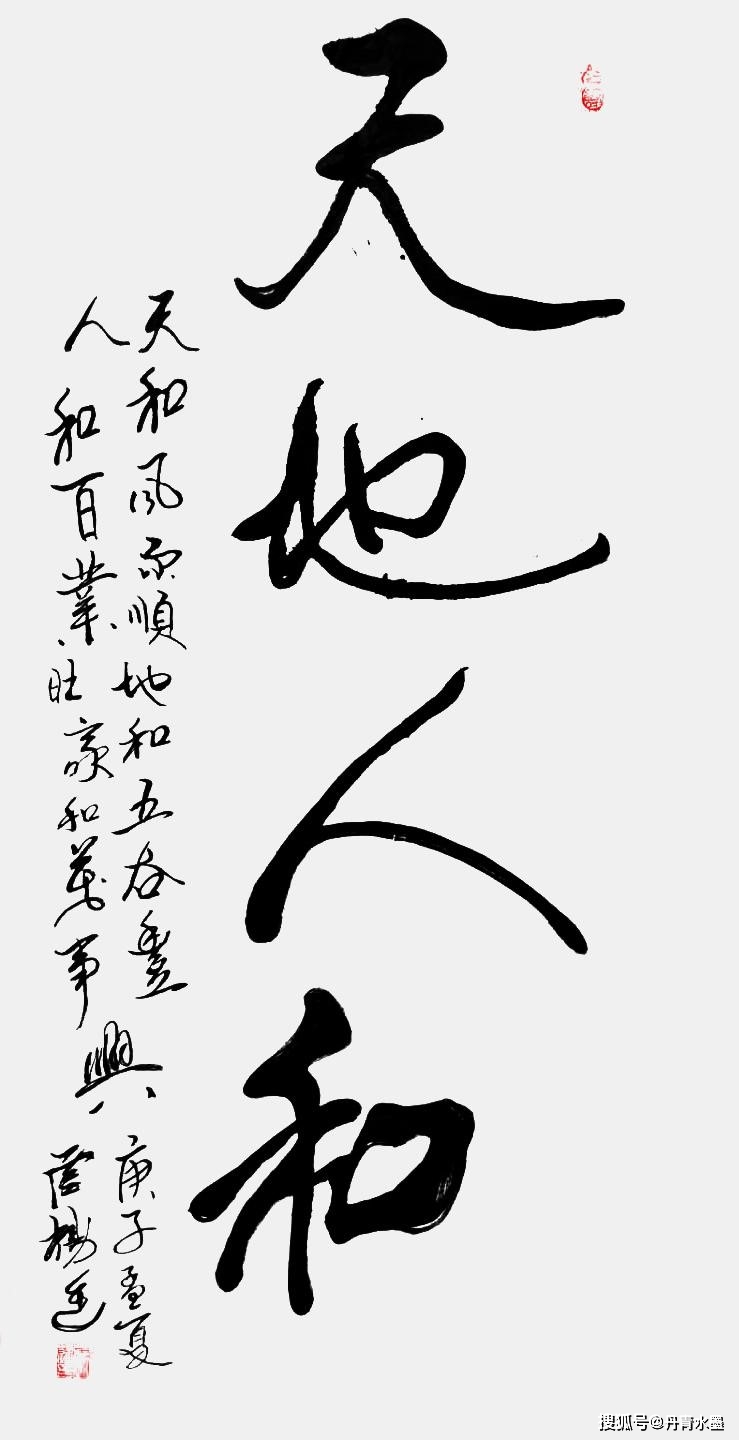 天地人和
天和風雨順地和五谷豐
人和百業旺家和萬事興
庚子孟夏
搜狐号@丹青水墨